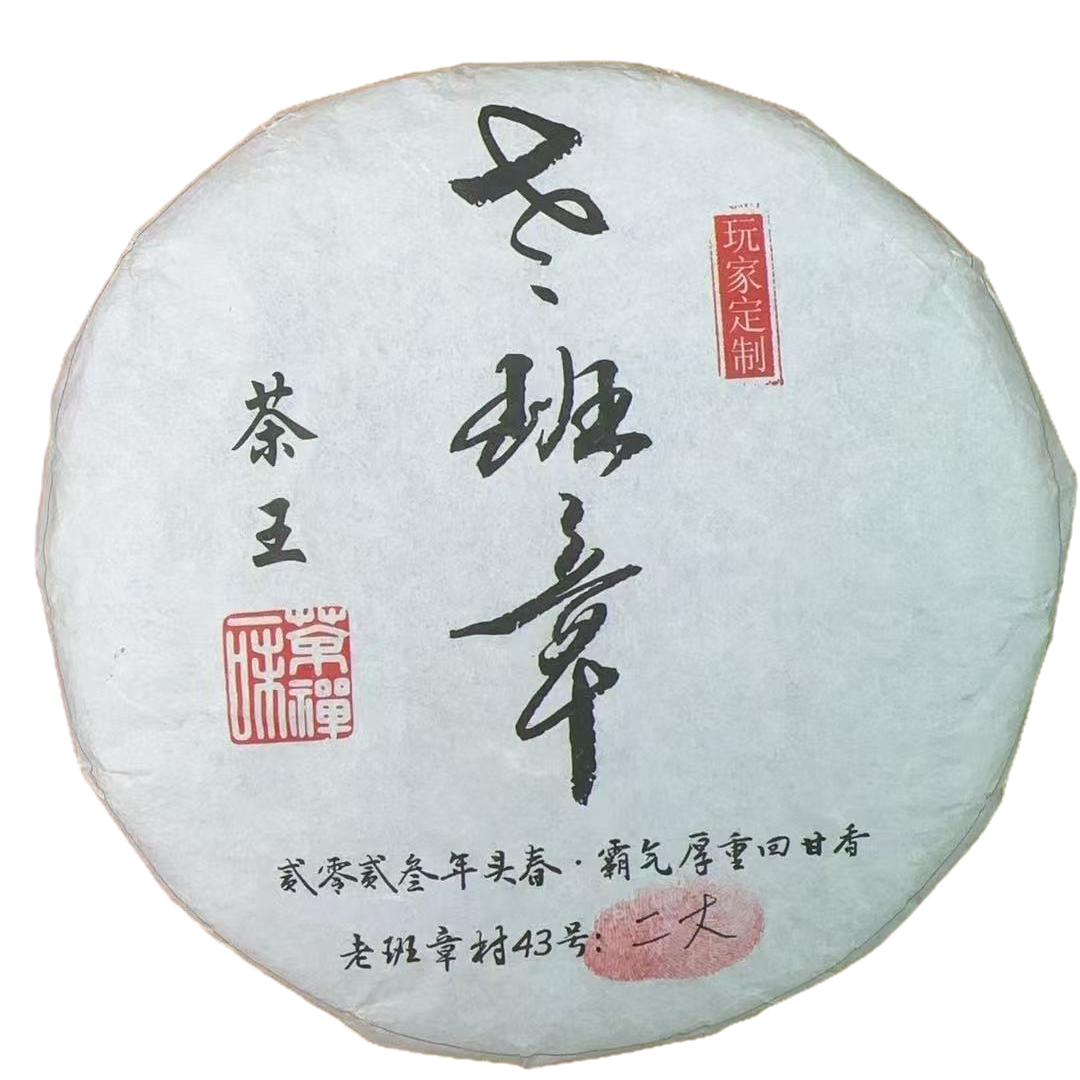 老班章
玩家定制
茶王
茶禪一味
贰零贰叁年头春·霸气厚重回甘香
老班章村43号:二大